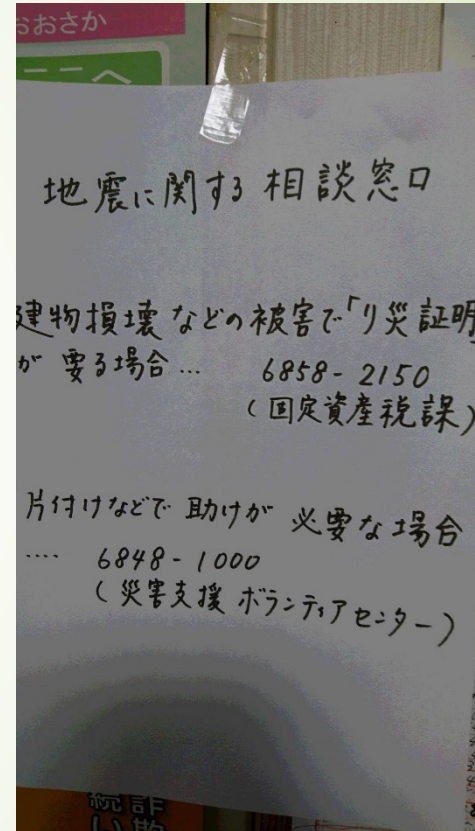 おおさか
地震に関する相談窓口
建物損壊などの被害で「り災証明
が要る場合… 6858-2150
(固定資産税課)
片付けなどで助けが必要な場合
.... 6848-1000
(災害支援ボランティアセンター)